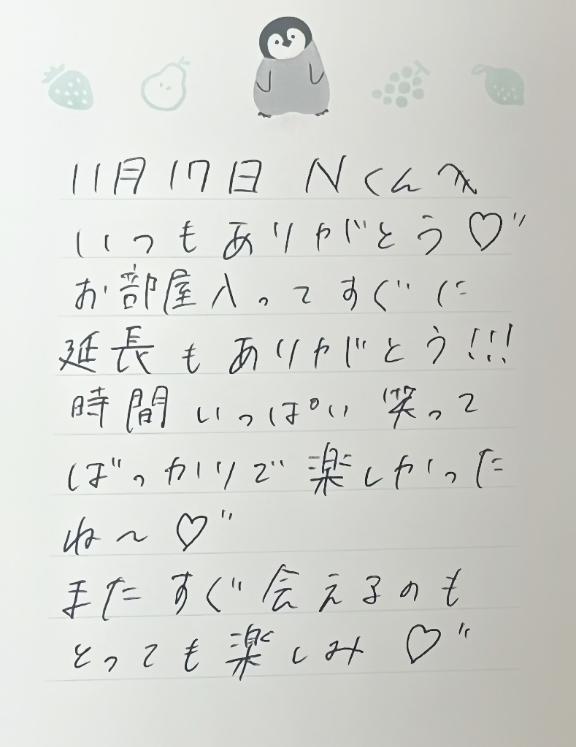 11月17日 Nくんへ
いつもありがとう♡"
お部屋入ってすぐに
延長もありがとう!!!
時間いっぱい笑って
ばっかりで楽しかった
ね〜♡"
またすぐ会えるのも
とっても楽しみ♡"